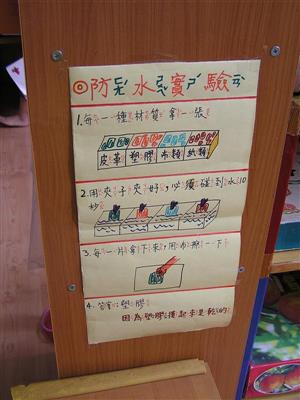 ◎防水實驗
1.每一種材質拿一張
皮革 塑膠 布類 紙類
2.用夾子夾好,必須碰到水10
秒
3.每一片拿下來,用布擦一下
4.答案:塑膠
因為塑膠摸起來是乾的